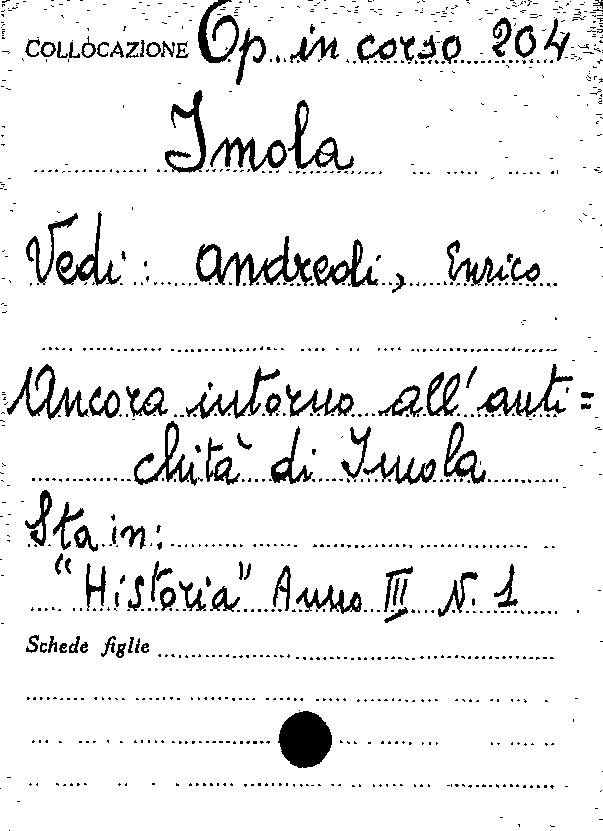 COLLOCAZIONE Op. in corso 204
Imola
Vedi: Andreoli, Enrico
Ancora intorno all'anti=
chità di Imola
Sta in:
"Historia" Anno III N. 1
Schede figlie